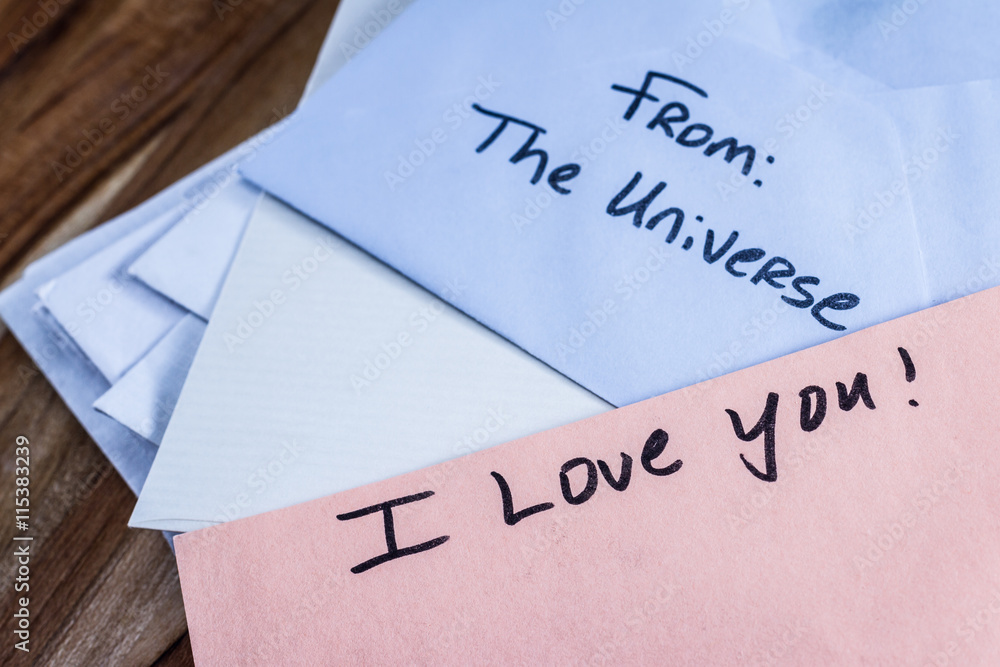 From:
The Universe
I Love you!
Adobe Stock | #115383239